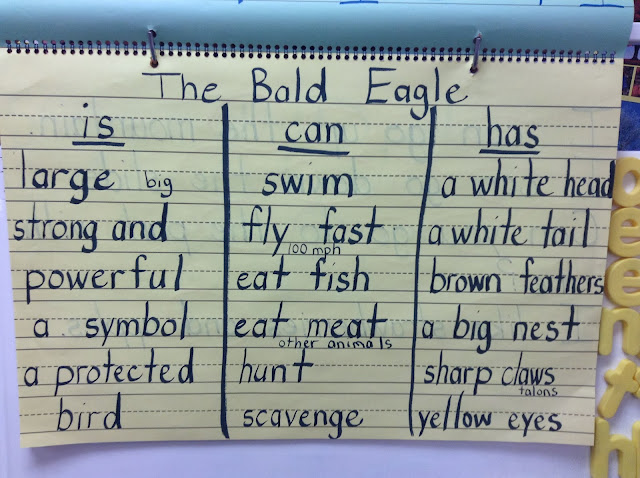 The Bald Eagle
is
large big
strong and
powerful
a symbol
a protected
bird
can
swim
fly fast
100 mph
eat fish
eat meat
other animals
hunt
scavenge
has
a white head
a white tail
brown feathers
a big nest
sharp claws
talons
yellow eyes